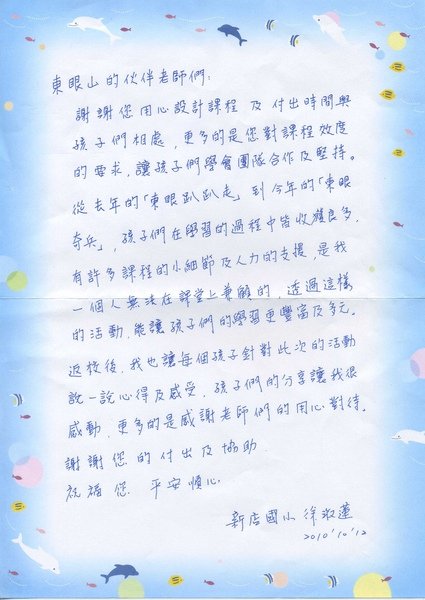 東眼山的伙伴老師們:
謝謝您用心設計課程 及 付出時間與
孩子們相處,更多的是您對課程效度
的要求,讓孩子們學會團隊合作及堅持。
從去年的「東眼趴趴走」到今年的「東眼
奇兵」,孩子們在學習的過程中皆收穫良多,
有許多課程的小細節及人力的支援,是我
一個人無法在課堂上兼顧的,透過這樣
的活動,能讓孩子們的學習更豐富及多元。
返校後,我也讓每個孩子針對此次的活動
說一說心得及感受,孩子們的分享讓我很
感動,更多的是感謝老師們的用心對待。
謝謝您的付出及協助.
祝福您 平安順心
新店國小 徐淑蓮
2010'10'12